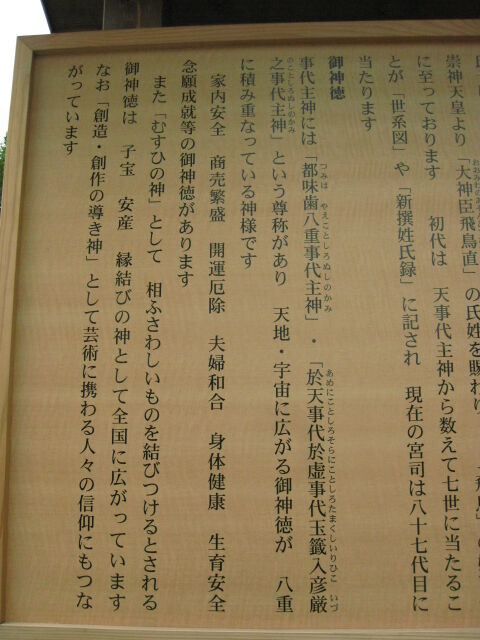 崇神天皇より「大神臣飛鳥直」の氏姓を賜わり
に至っております　初代は　天事代主神から数えて七世に当たるこ
とが「世系図」や「新撰姓氏録」に記され　現在の宮司は八十七代目に
当たります
御神徳
事代主神には「都味歯八重事代主神」・「於天事代於虚事代玉籤入彦厳
之事代主神」という尊称があり　天地・宇宙に広がる御神徳が　八重
に積み重なっている神様です
家内安全　商売繁盛　開運厄除　夫婦和合　身体健康　生育安全
念願成就等の御神徳があります
また「むすひの神」として　相ふさわしいものを結びつけるとされる
御神徳は　子宝　安産　縁結びの神として全国に広がっています
なお「創造・創作の導き神」として芸術に携わる人々の信仰にもつな
がっています